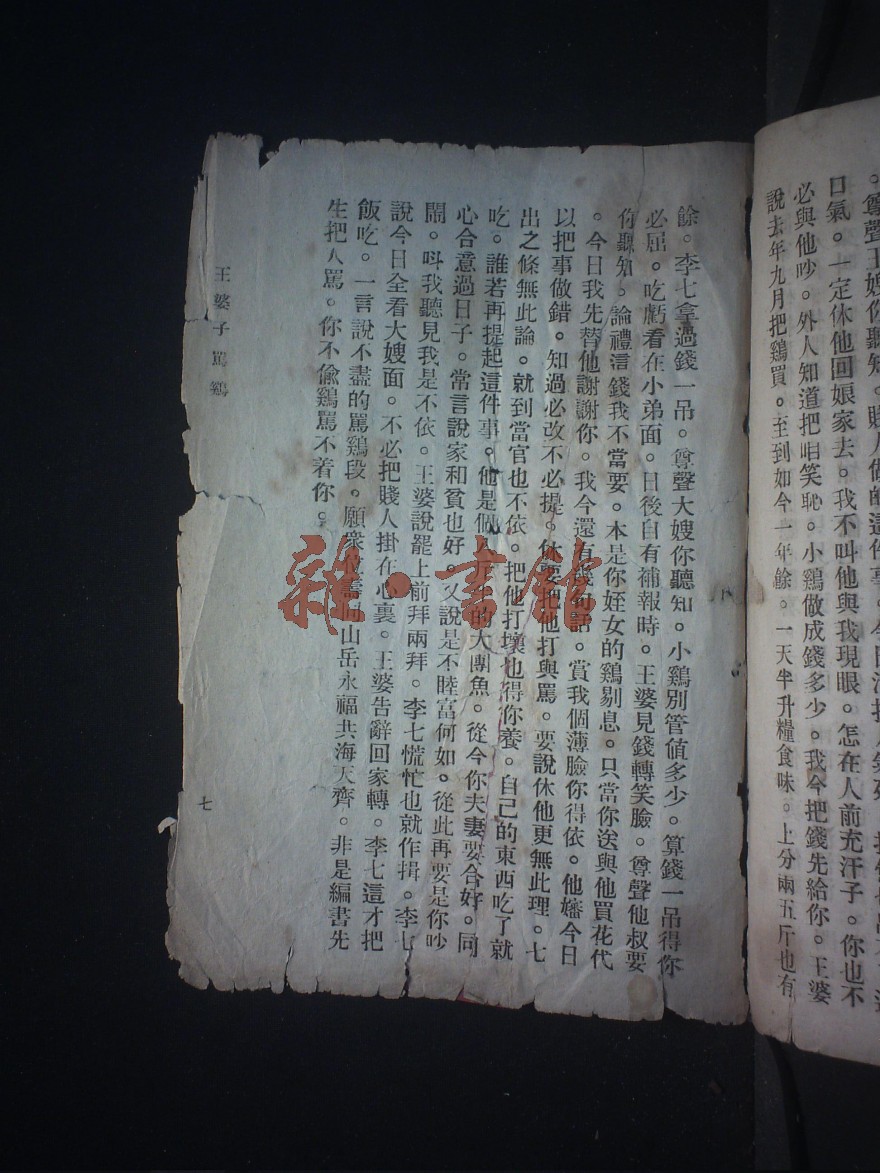 說去年九月把鷄買。至到如今一年餘。一天半升糧食味。上分兩五斤也有
必與他吵。外人知道把咱笑恥。小鷄做成錢多少。我今把錢先給你。王婆
口氣。一定休他回娘家去。我不叫他與我現眼。怎在人前充汗子。你也不
餘。李七拿過錢一吊。尊聲大嫂你聽知。小鷄別管值多少。算錢一吊得你
必屈。吃虧看在小弟面。日後自有補報時。王婆見錢轉笑臉。尊聲他叔要
你聽知。論禮這錢我不當要。本是你姪女的鷄剔息。只當你送與他買花代
。今日我先替他謝謝你。我今還有幾句話。賞我個薄臉你得依。他嬸今日
以把事做錯。知過必改不必提。休要把他打與罵。要說休他更無此理。七
出之條無此論。就到當官也不依。把他打壞也得你養。自己的東西吃了就
吃。誰若再提起這件事。他是個的大團魚。從今你夫妻要合好。同
心合意過日子。常言說家和貧也好。又說是不睦富何如。從此再要是你吵
鬧。呌我聽見我是不依。王婆說罷上前拜兩拜。李七慌忙也就作揖。李七
說今日全看大嫂面。不必把賤人掛在心裏。王婆告辭回家轉。李七這才把
飯吃。一言說不盡的罵鷄段。願衆位壽同山岳永福共海天齊。非是編書先
生把人罵。你不偸鷄罵不着你。
王婆子罵鷄
七
雜·書館